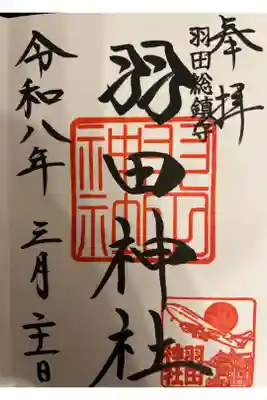 奉拝
羽田総鎮守
羽田神社
令和八年 三月 二十一日
羽田神社
羽田神社